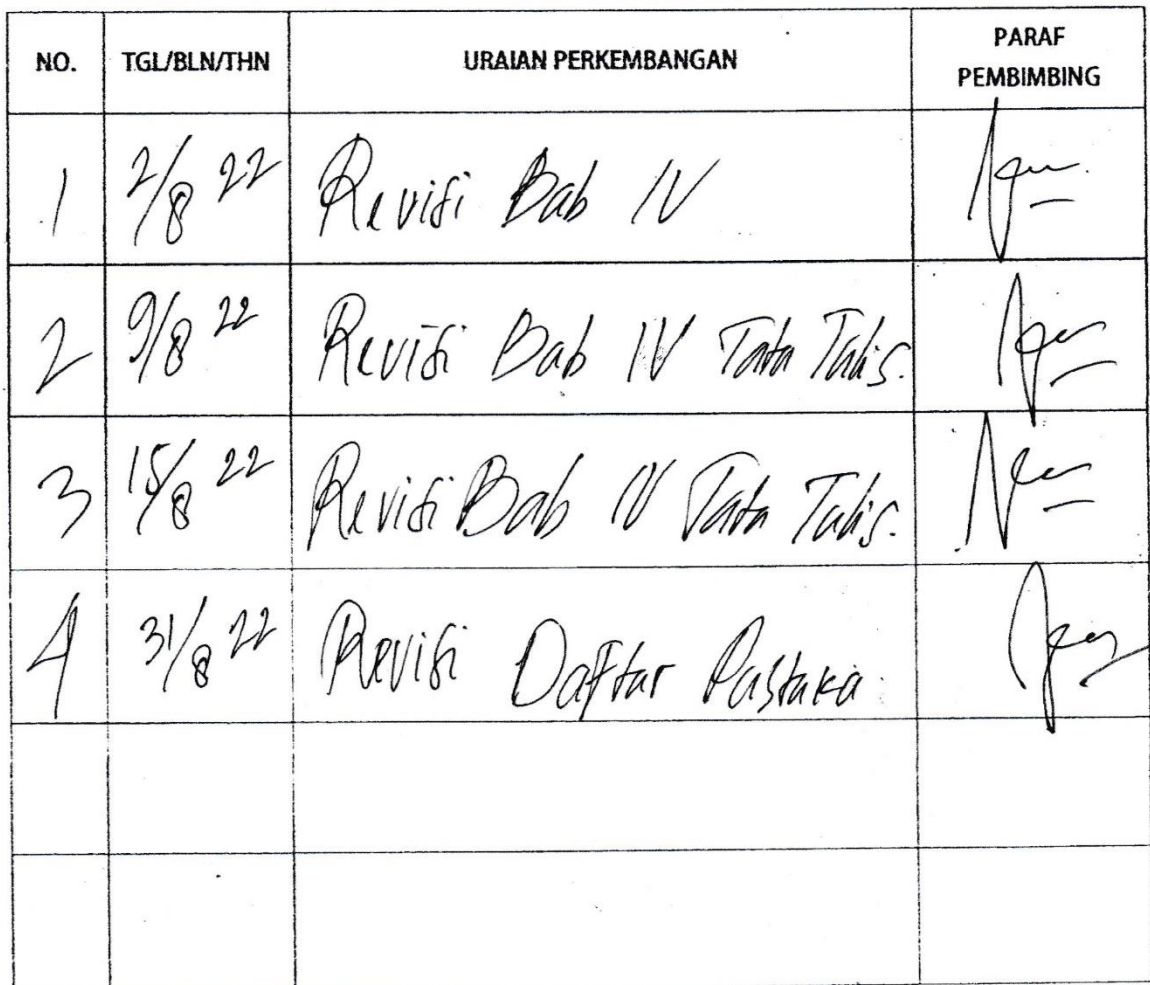 NO. TGL/BLN/THN URAIAN PERKEMBANGAN PARAF PEMBIMBING
1 2/8 22 Revisi Bab IV
2 9/8 22 Revisi Bab IV Tata Tulis.
3 15/8 22 Revisi Bab IV Tata Tulis.
4 31/8 22 Revisi Daftar Pustaka